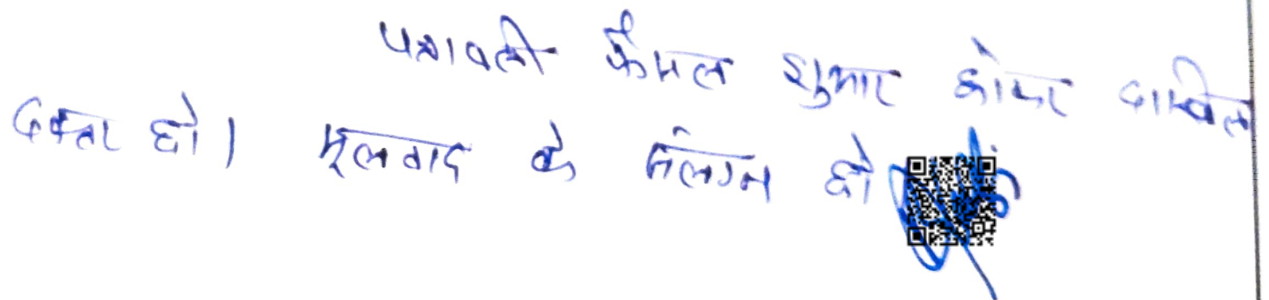 पत्रावली फैसल शुमार होकर दाखिल
दफ्तर हो। मूलवाद के संलग्न हो